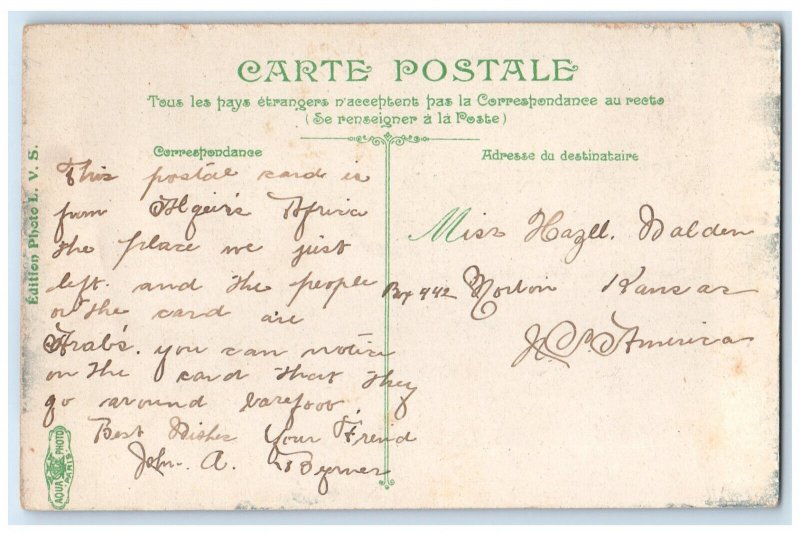 CARTE POSTALE
Tous les pays étrangers n'acceptent pas la Correspondance au recto
(Se renseigner à la Poste)
Correspondance
This postal card is
from Algeirs Africa
the place we just
left. and the people
on the card are
Arab's. you can notice
on the card that they
go around barefoot
Best Wishes Your Friend
John. A.
Adresse du destinataire
Miss Hazell. Walden
Box 442 Norton Kansas
America
Édition Photo L. V. S.
AQUA PHOTO
PARIS